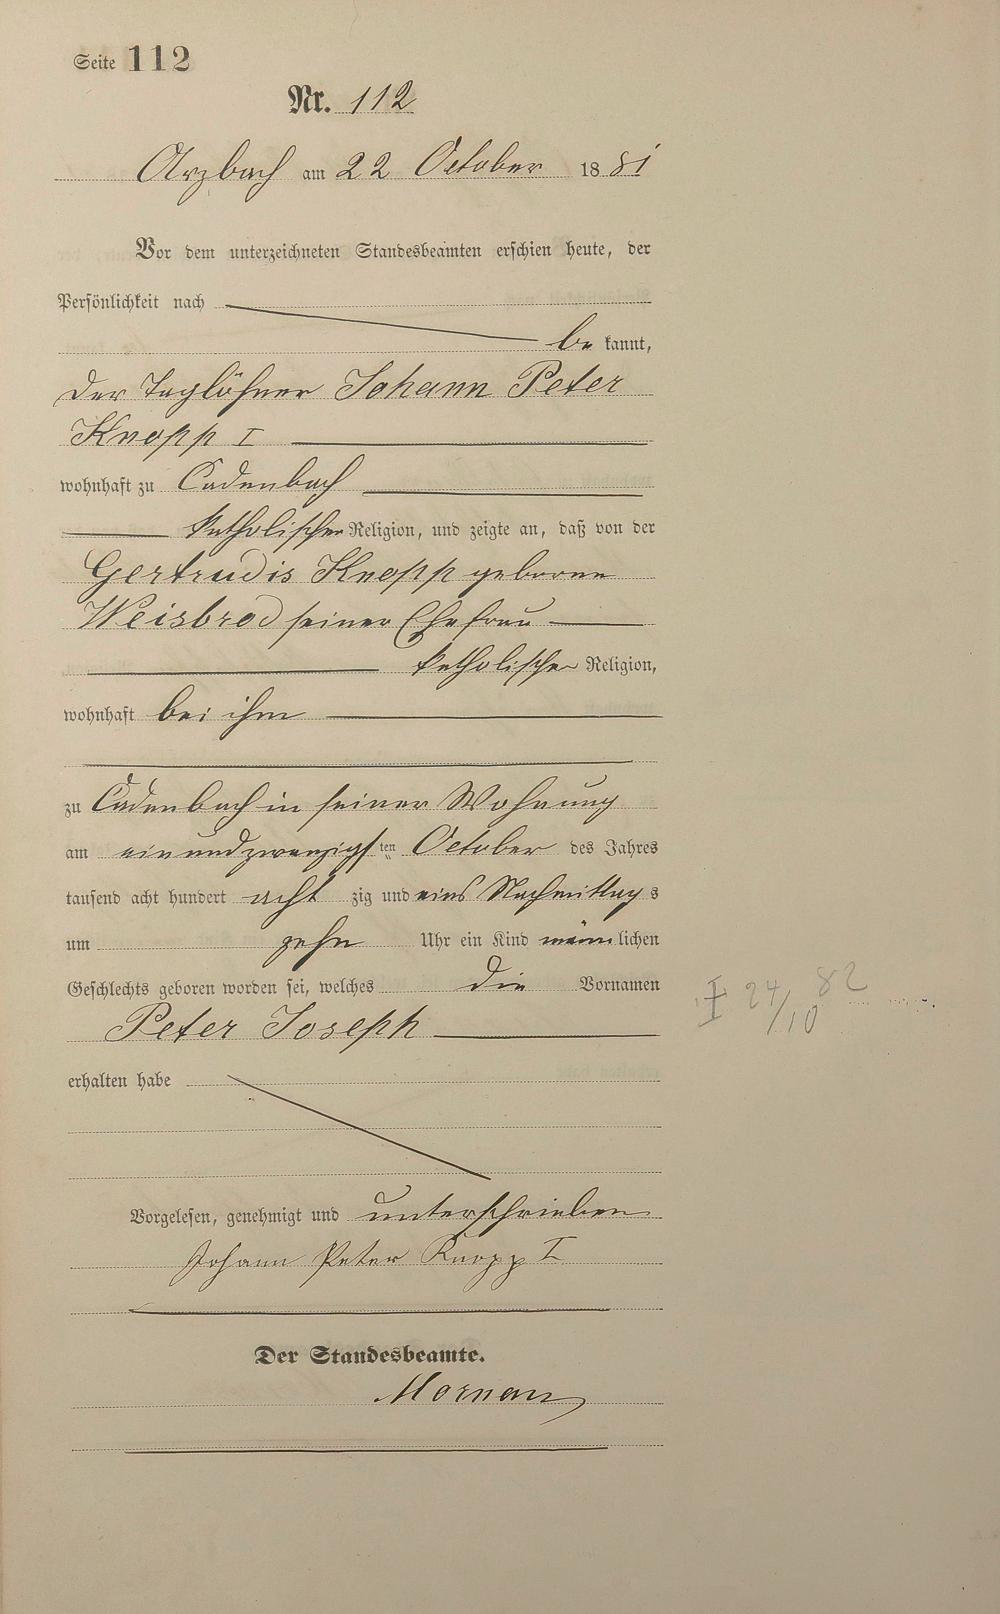 Seite 112
Nr. 112
Arzbach am 22 October 1881
Vor dem unterzeichneten Standesbeamten erschien heute, der
Persönlichkeit nach
be kannt,
der Taglöhner Johann Peter
Knopp I
wohnhaft zu Cadenbach
katholischer Religion, und zeigte an, daß von der
Gertrudis Knopp geborne
Weisbrod seiner Ehefrau
katholischer Religion,
wohnhaft bei ihm
zu Cadenbach in seiner Wohnung
am einundzwanzigsten October des Jahres
tausend acht hundert acht zig und eins Nachmittags
um zehn Uhr ein Kind männlichen
Geschlechts geboren worden sei, welches die Vornamen
Peter Joseph
erhalten habe
Vorgelesen, genehmigt und unterschrieben
Johann Peter Knopp I
Der Standesbeamte.
† 24/10 82